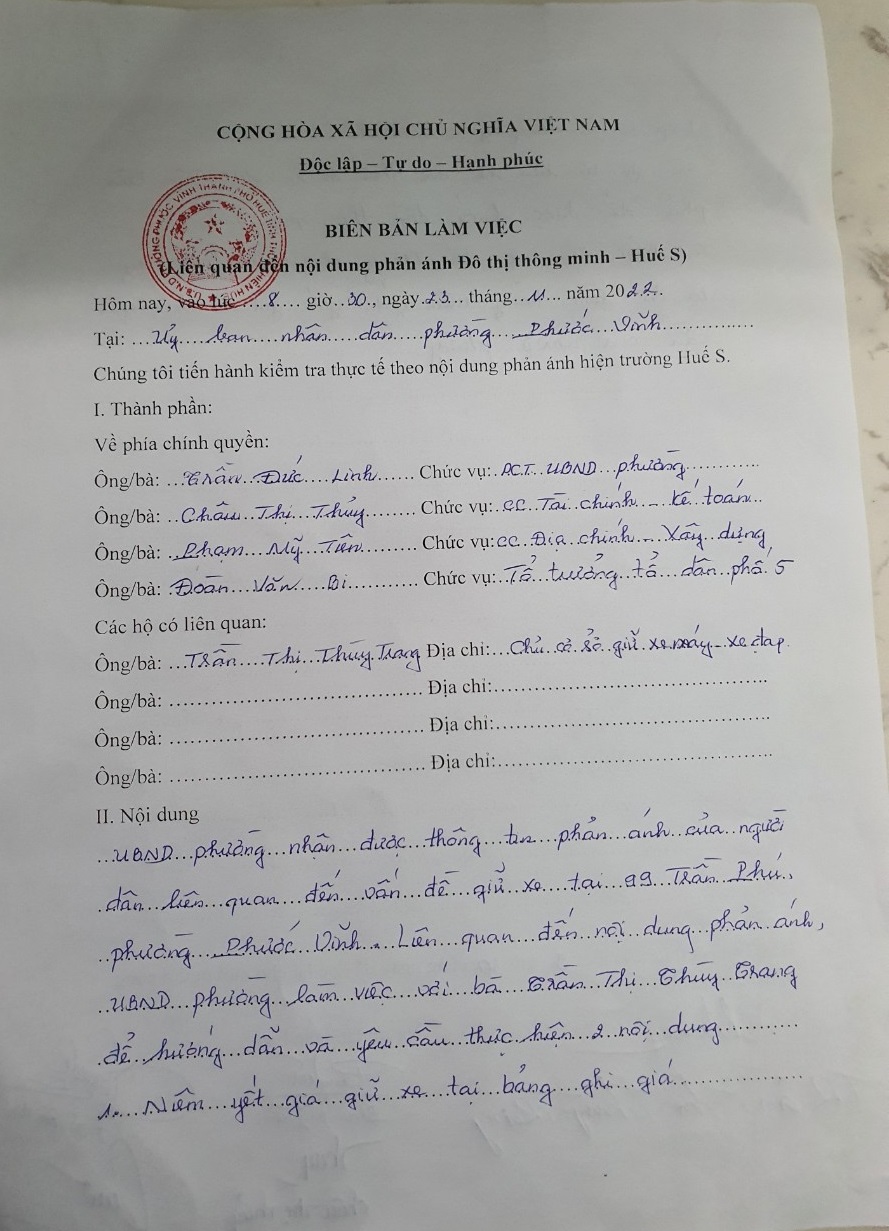 CỘNG HÒA XÃ HỘI CHỦ NGHĨA VIỆT NAM
Độc lập – Tự do – Hạnh phúc
BIÊN BẢN LÀM VIỆC
(Liên quan đến nội dung phản ánh Đô thị thông minh – Huế S)
Hôm nay, vào lúc ....8.... giờ..30., ngày.23... tháng..11... năm 2022.
Tại: ...Uỷ....ban....nhân....dân....phường....Phước...Vĩnh...............
Chúng tôi tiến hành kiểm tra thực tế theo nội dung phản ánh hiện trường Huế S.
I. Thành phần:
Về phía chính quyền:
Ông/bà: ...Trần...Đức....Linh...... Chức vụ:..P.C.T...UBND...phường...........
Ông/bà: ...Châu...Thị...Thủy........ Chức vụ:..CC...Tài..chính...-...kế..toán..
Ông/bà: ...Phạm...Mỹ...Tiên......... Chức vụ:CC...Địa..chính...-...Xây..dựng
Ông/bà: .Đoàn....Văn....Bi........... Chức vụ:..Tổ...trưởng...tổ...dân..phố..5
Các hộ có liên quan:
Ông/bà: ...Trần....Thị...Thùy.Trang Địa chỉ:...Chủ..cơ.sở..giữ.xe.máy-.xe đạp
Ông/bà: .................................... Địa chỉ:.......................................
Ông/bà: .................................... Địa chỉ:.......................................
Ông/bà: .................................... Địa chỉ:.......................................
II. Nội dung
...UBND...phường...nhận...được...thông..tin...phản...ánh..của..người
.dân..liên..quan...đến...vấn...đề...giữ...xe...tại...99...Trần...Phú..
..phường...Phước..Vĩnh...Liên...quan...đến..nội..dung..phản..ánh,
..UBND...phường...làm..việc...với...bà...Trần...Thị...Thùy..Trang
.để..hướng...dẫn...và...yêu..cầu..thực..hiện..2..nội..dung...........
1....Niêm..yết..giá..giữ..xe...tại..bảng...ghi...giá.................